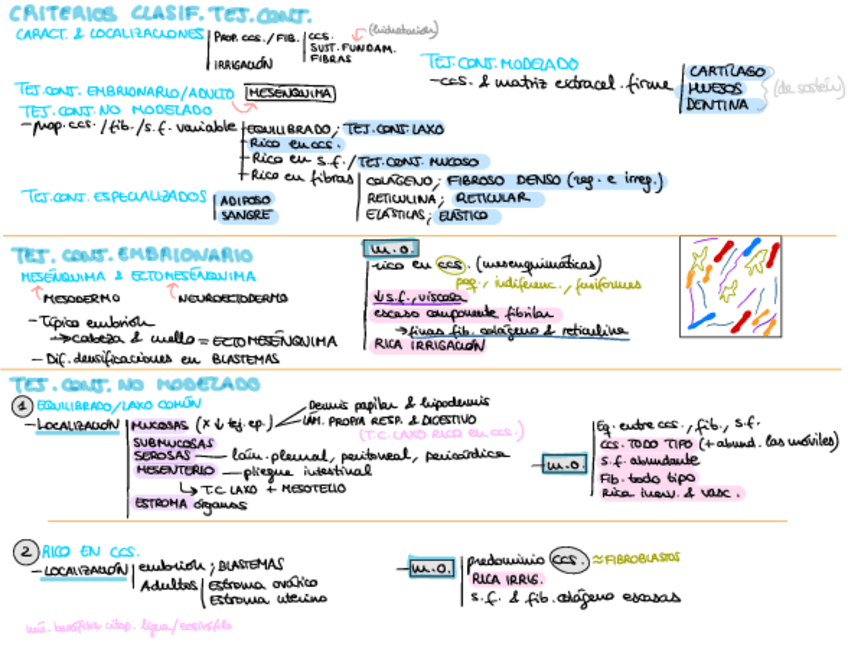 CRITERIOS CLASIF. TEJ. CONT.
CARACT. & LOCALIZACIONES
PROP. CCS. / FIB.
CCS.
SUST. FUNDAM.
FIBRAS
(hidratación)
IRRIGACIÓN
TEJ. CONT. EMBRIONARIO/ADULTO MESÉNQUIMA
TEJ. CONT. NO MODELADO
- prop. ccs. / fib. / s.f. variable
EQUILIBRADO; TEJ. CONJ. LAXO
Rico en ccs.
Rico en s.f. / TEJ. CONJ. MUCOSO
Rico en fibras
COLÁGENO; FIBROSO DENSO (reg. e irreg.)
RETICULINA; RETICULAR
ELÁSTICAS; ELÁSTICO
TEJ. CONJ. ESPECIALIZADOS
ADIPOSO
SANGRE
TEJ. CONT. MODELADO
- ccs. & matriz extracel. firme
CARTÍLAGO
HUESOS
DENTINA
(de sostén)
TEJ. CONT. EMBRIONARIO
MESÉNQUIMA & ECTOMESÉNQUIMA
MESODERMO
NEUROECTODERMO
- Típico embrión
cabeza & cuello = ECTOMESÉNQUIMA
- Dif. densificaciones en BLASTEMAS
m.o.
rico en ccs. (mesenquimáticas)
peq., indiferenc., fusiformes
↓ s.f., viscosa
escaso componente fibrilar
→ finas fib. colágeno & reticulina
RICA IRRIGACIÓN
TEJ. CONT. NO MODELADO
1 EQUILIBRADO/LAXO COMÚN
- LOCALIZACIÓN
MUCOSAS (x ↓ tej. ep.)
Dermis papilar & hipodermis
LÁM. PROPIA RESP. & DIGESTIVO
(T.C. LAXO RICO EN CCS.)
SUBMUCOSAS
SEROSAS - lám. pleural, peritoneal, pericárdica
MESENTERIO - pliegue intestinal
T.C. LAXO + MESOTELIO
ESTROMA órganos
- m.o.
Eq. entre ccs., fib., s.f.
CCS. TODO TIPO (+ abund. las móviles)
s.f. abundante
Fib. todo tipo
Rica inerv. & vasc.
2 RICO EN CCS.
- LOCALIZACIÓN
embrión; BLASTEMAS
Adultos
Estroma ovárico
Estroma uterino
- m.o.
predominio ccs. ≈ FIBROBLASTOS
RICA IRRIG.
s.f. & fib. colágeno escasas